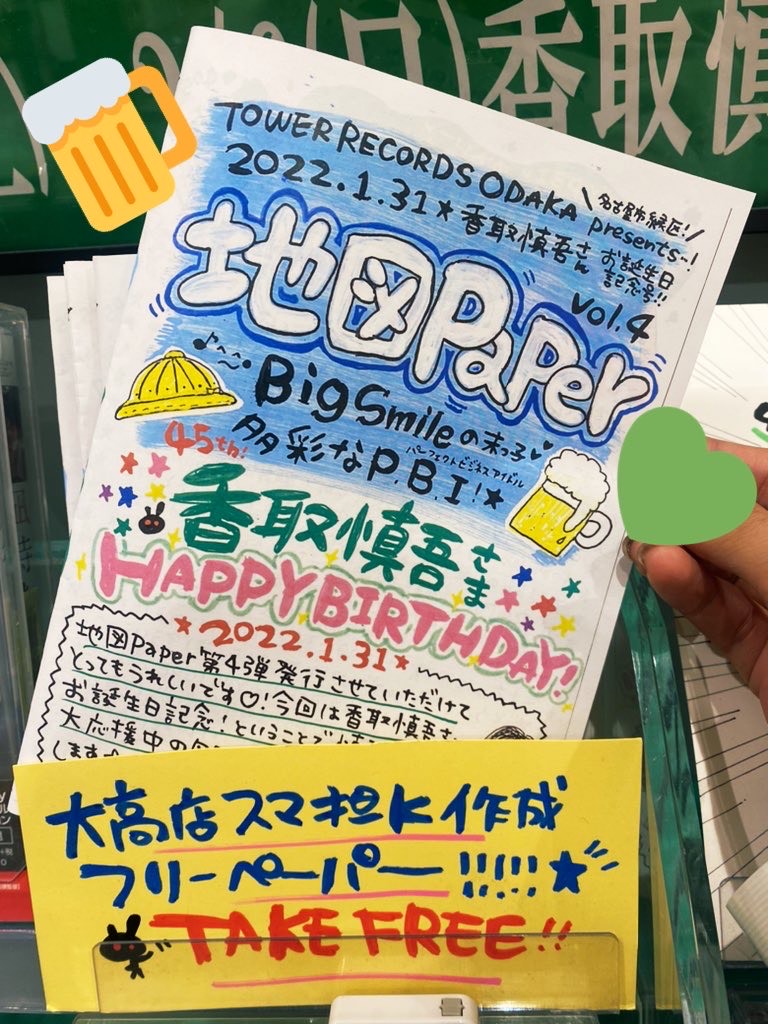 (日)香取慎
TOWER RECORDS ODAKA
\名古屋市緑区!/
presents…!
2022.1.31★香取慎吾さん お誕生日記念号!!
vol.4
地図Paper
Big Smileの末っ子♥♥
パーフェクトビジネスアイドル
多彩なP.B.I!★
45th!
香取慎吾さま
HAPPY BIRTHDAY!
★2022.1.31★
地図Paper第4弾発行させていただけて
とってもうれしいです♡!今回は香取慎吾さ
お誕生日記念!ということで
大応援中の
します
大高店スマ担K作成
フリーペーパー!!!!!★
TAKE FREE!!